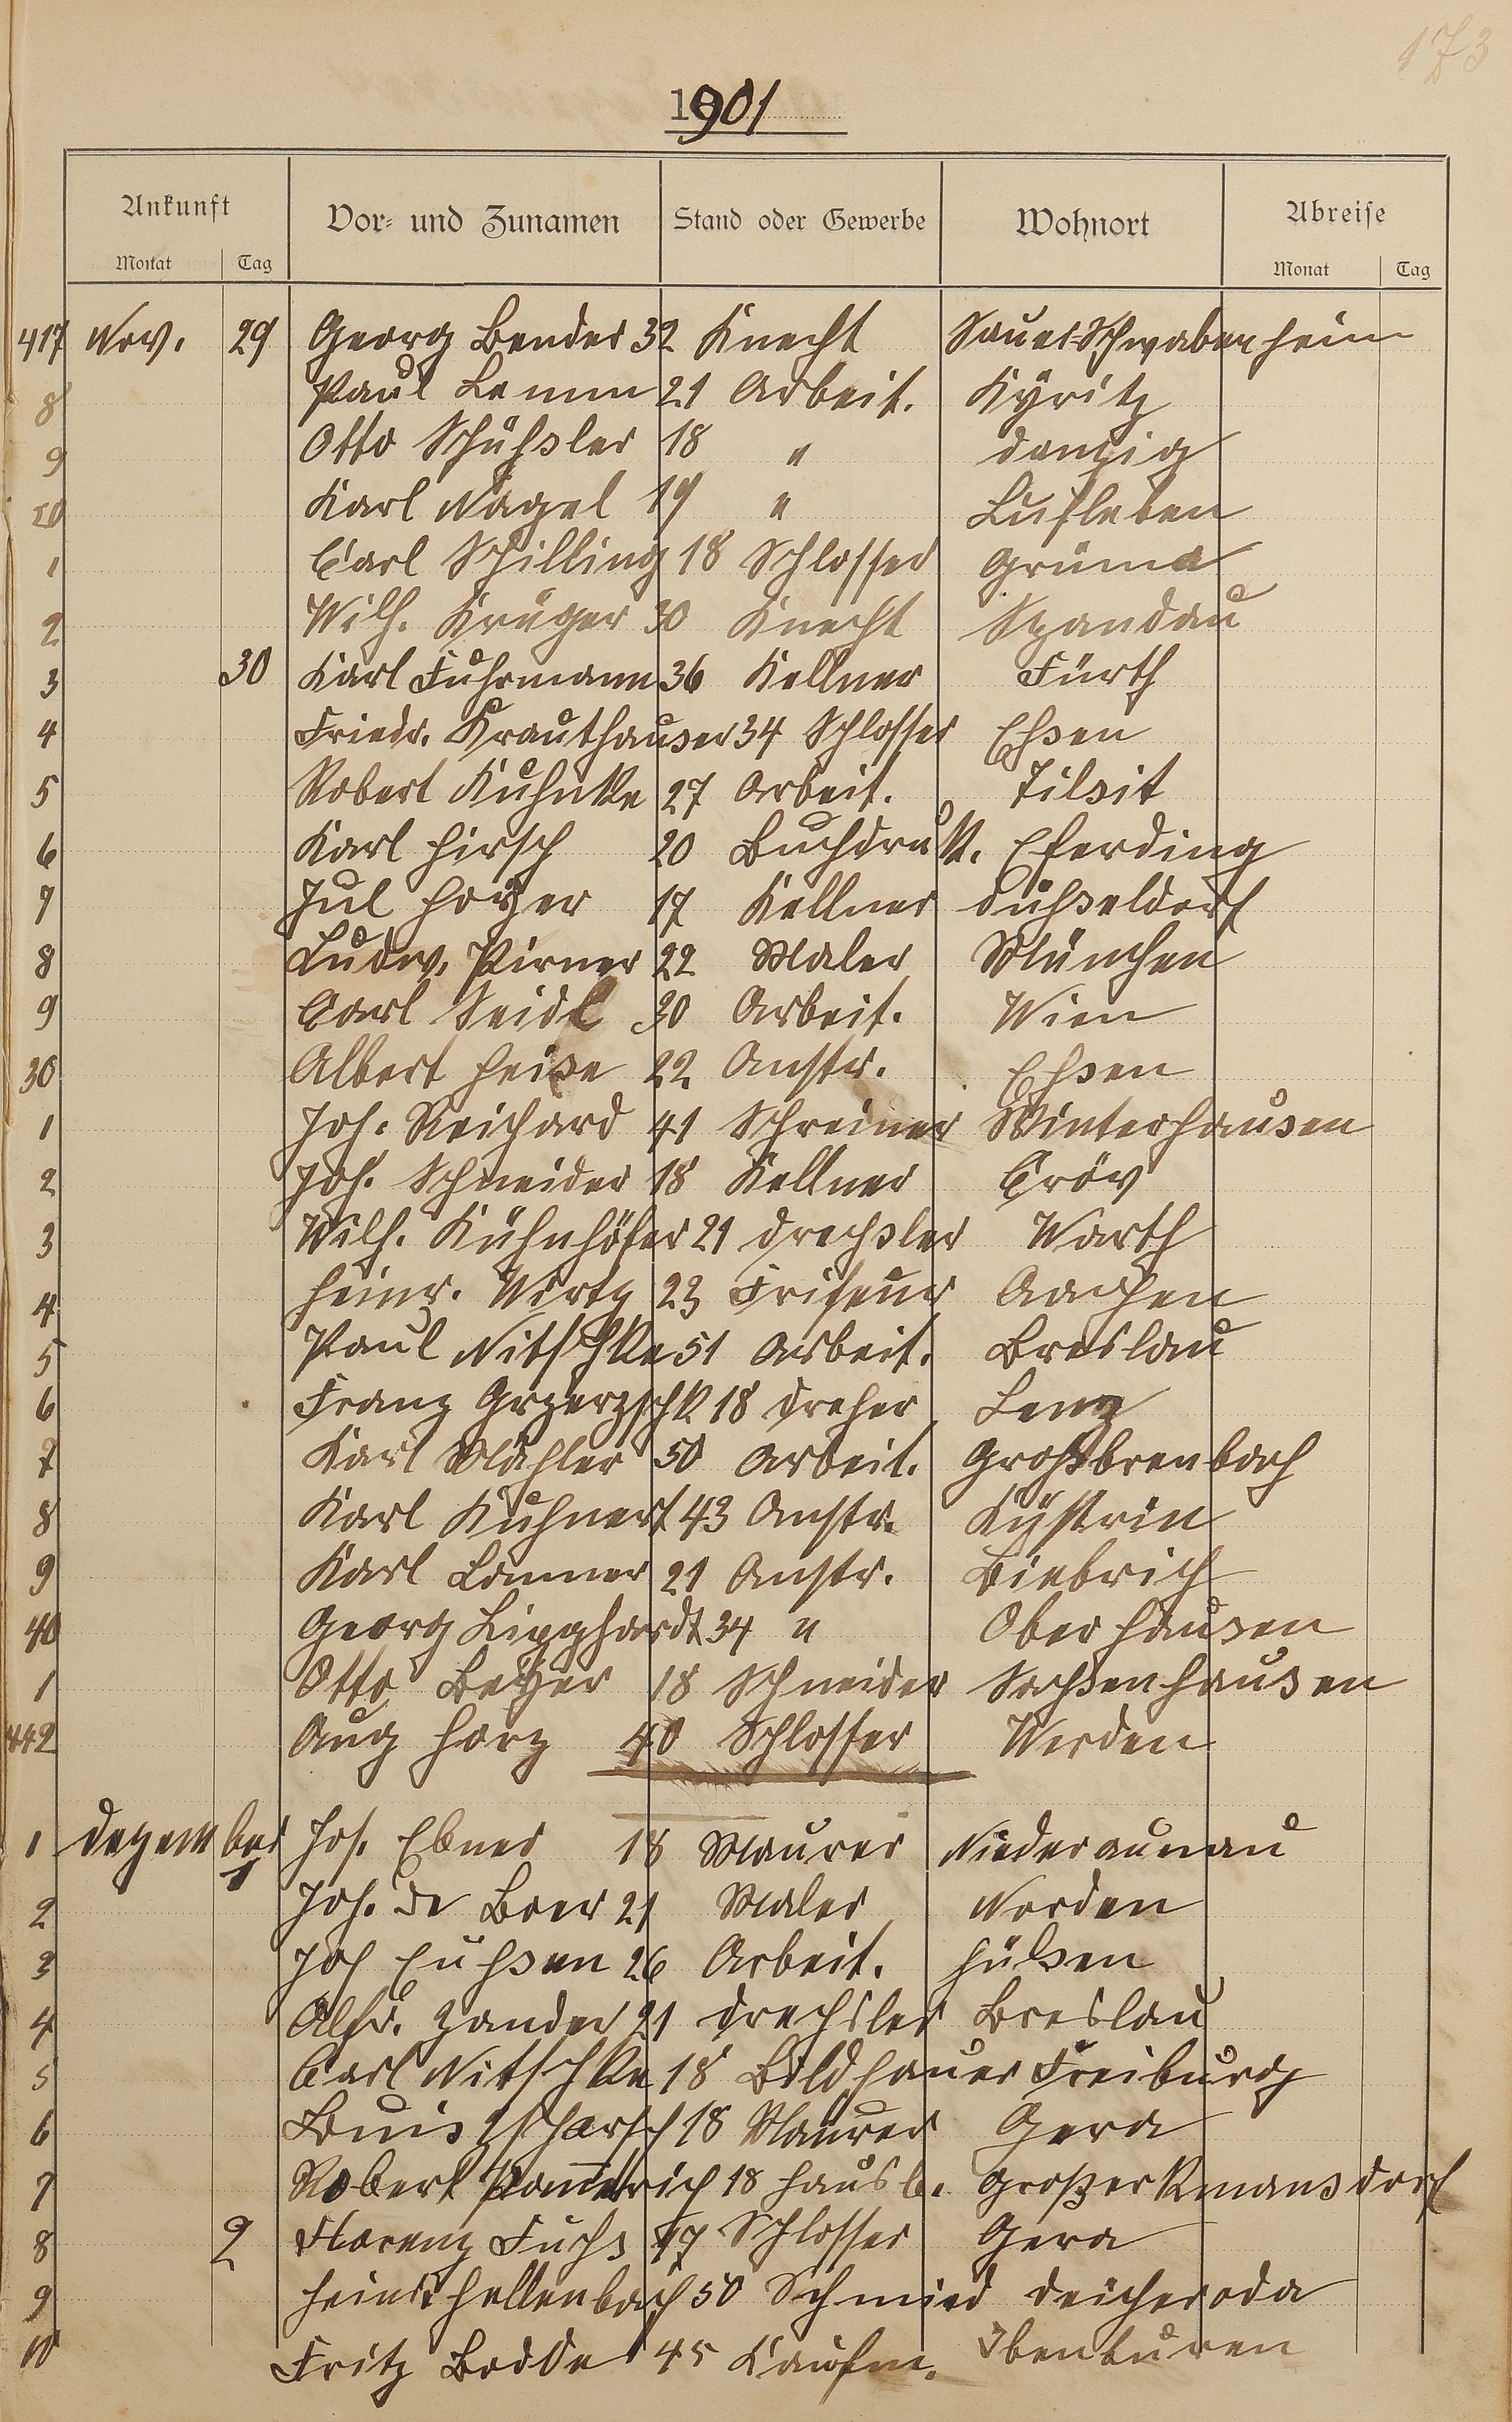 173
1901
Ankunft Vor- und Zunamen Stand oder Gewerbe Wohnort Abreise
Monat Tag Monat Tag
417 Nov. 29 Georg Bender 32 Knecht Sauer-Schwabenheim
8 Paul Lemm 21 Arbeit. Kyritz
9 Otto Schüßler 18 " Danzig
20 Karl Nagel 19 " Lußleben
1 Carl Schilling 18 Schlosser Grüma
2 Wilh. Krüger 30 Knecht Spandau
3 30 Karl Fuhrmann 36 Kellner Fürth
4 Friedr. Krauthauser 34 Schlosser Eßen
5 Robert Kuhnke 27 Arbeit. Tilsit
6 Karl Hirsch 20 Buchdruk. Eferding
7 Jul Hoyer 17 Kellner Düßeldorf
8 Ludw. Pirner 22 Maler München
9 Carl Seidl 30 Arbeit. Wien
30 Albert Heise 22 Anstr. Eßen
1 Joh. Reichard 41 Schreiner Winterhausen
2 Joh. Schneider 18 Kellner Cröv
3 Wilh. Kühnhöfer 21 Drechsler Warth
4 Heinr. Wirtz 23 Friseur Aachen
5 Paul Nitschke 51 Arbeit. Breslau
6 Franz 18 Dreher Lenz
7 Karl Mähler 50 Arbeit. Großbrenbach
8 Karl Kuhnert 43 Anstr. Küstrin
9 Karl Lommer 21 Anstr. Biebrich
40 Georg Lipphardt 34 " Oberhausen
1 Otto Beyer 18 Schneider Sachsenhausen
442 Aug Horz 40 Schlosser Werden
1 Dezember 1 Jos. Ebner 18 Maurer Niederaunau
2 Joh. de Boer 21 Maler Norden
3 Joh 26 Arbeit. Hülsen
4 Alfr. Zander 21 Drechsler Breslau
5 Carl Nitschke 18 Bildhauer Freiburg
6 Louis Zscharsch 18 Maurer Gera
7 Robert Pommerich 18 Hausb. Großerkmansdorf
8 2 Florenz Fuchs 47 Schlosser Gera
9 Heinr Hellenbach 50 Schmied Deicheroda
10 Fritz Bodde 45 Kaufm. Ibenburen